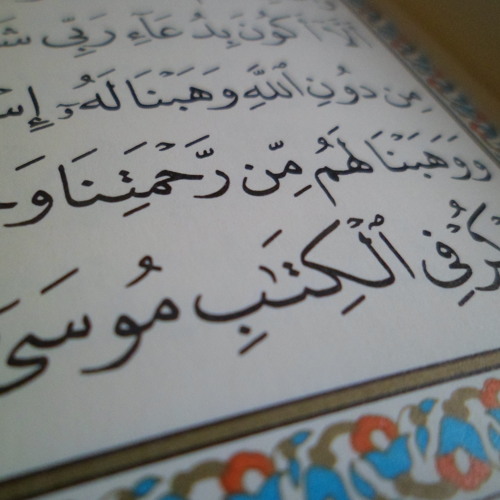 أَكُونَ بِدُعَآءِ رَبِّى
مِن دُونِ ٱللَّهِ وَهَبْنَا لَهُۥٓ
وَوَهَبْنَا لَهُم مِّن رَّحْمَتِنَا
فِى ٱلْكِتَٰبِ مُوسَىٰٓ